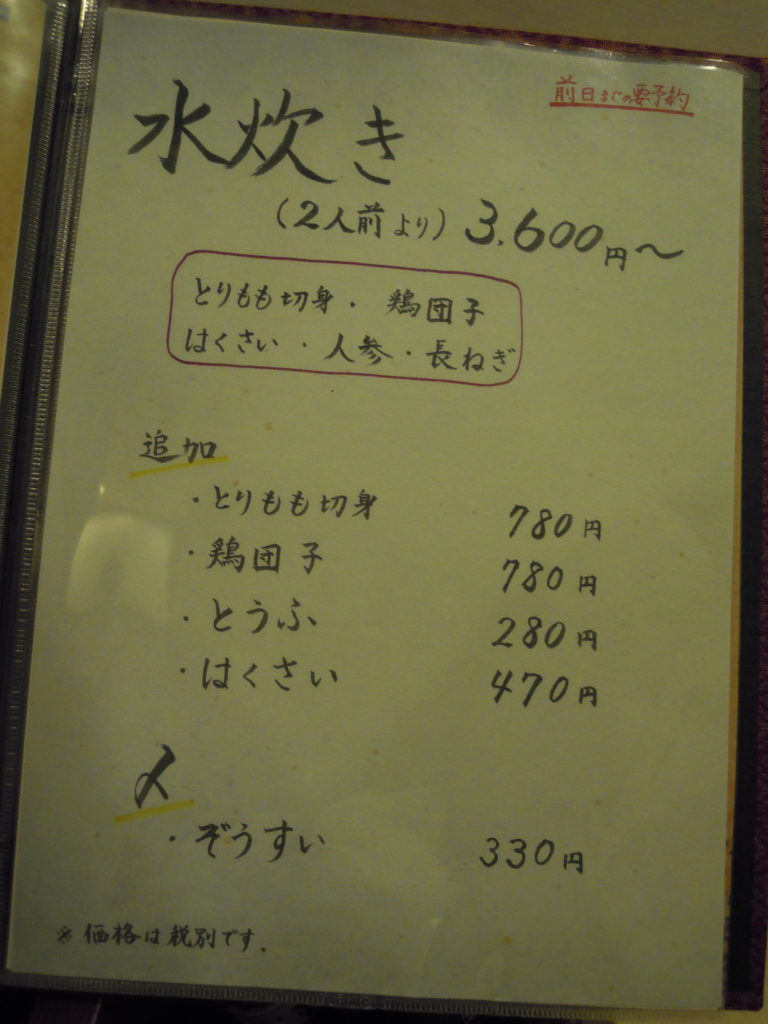 前日までの要予約
水炊き
(2人前より) 3,600円〜
とりもも切身・鶏団子
はくさい・人参・長ねぎ
追加
・とりもも切身 780円
・鶏団子 780円
・とうふ 280円
・はくさい 470円
〆
・ぞうすい 330円
※価格は税別です.